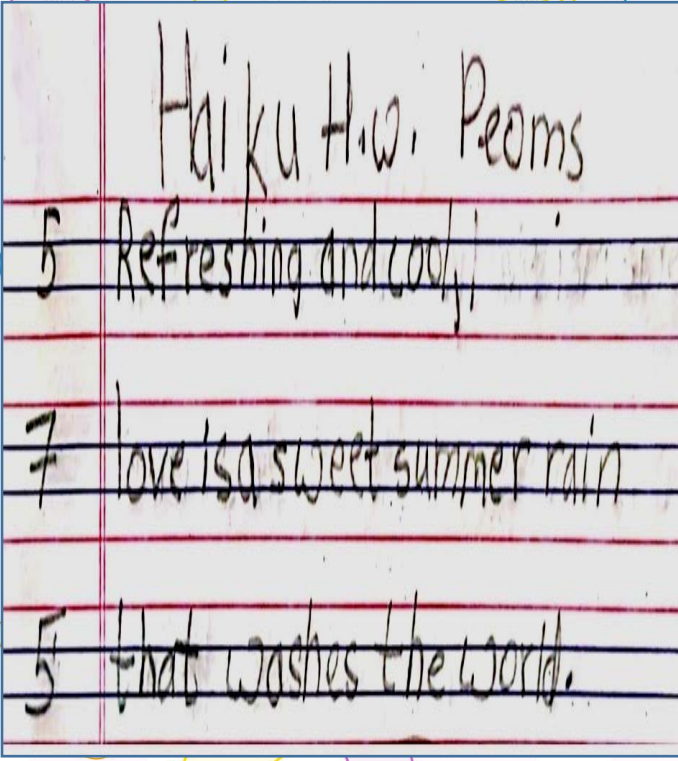 Haiku H.w. Peoms
5 Refreshing and cool,
7 love is a sweet summer rain
5 that washes the world.